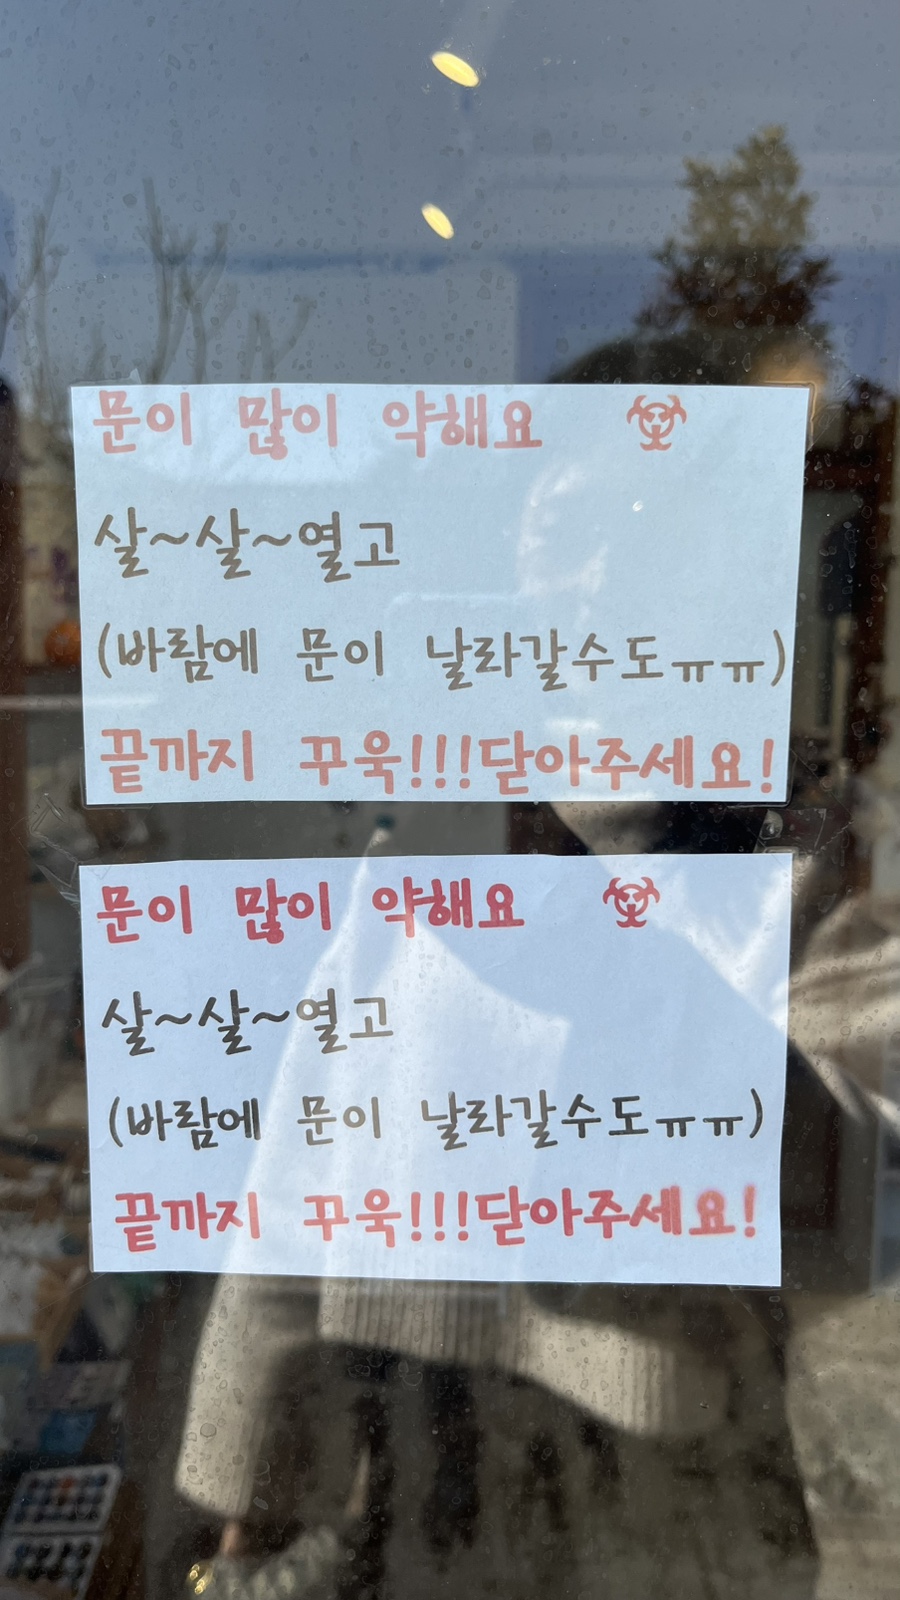 문이 많이 약해요 ☣
살~살~열고
(바람에 문이 날라갈수도ㅠㅠ)
끝까지 꾸욱!!!닫아주세요!
문이 많이 약해요 ☣
살~살~열고
(바람에 문이 날라갈수도ㅠㅠ)
끝까지 꾸욱!!!닫아주세요!